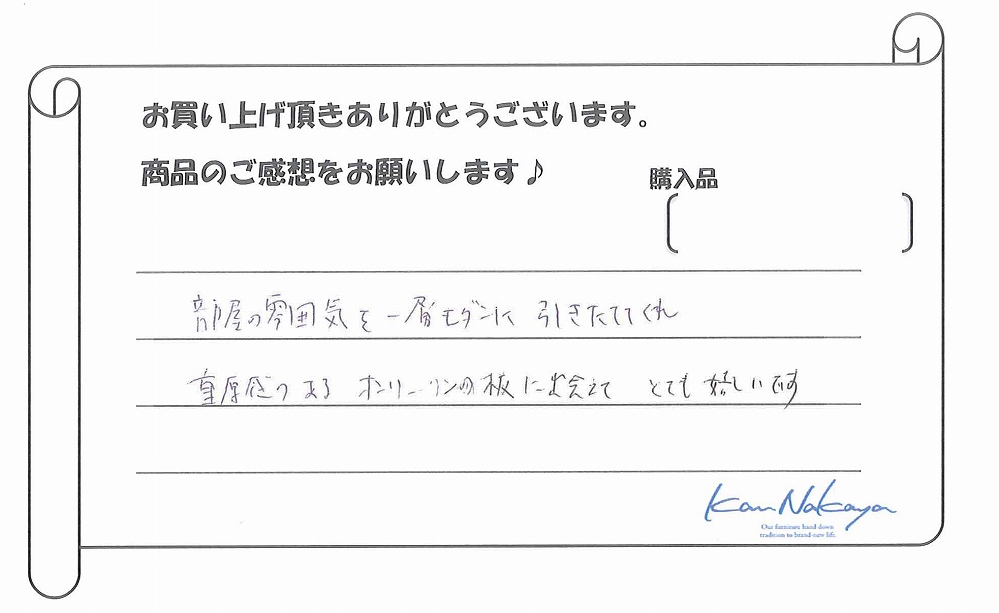 お買い上げ頂きありがとうございます。
商品のご感想をお願いします♪
購入品
部屋の雰囲気を一層モダンに 引きたててくれ
重厚感のある オンリーワンの板に出会えて とても嬉しいです
Kan Nakaya
Our furniture hand down
tradition to brand-new life.